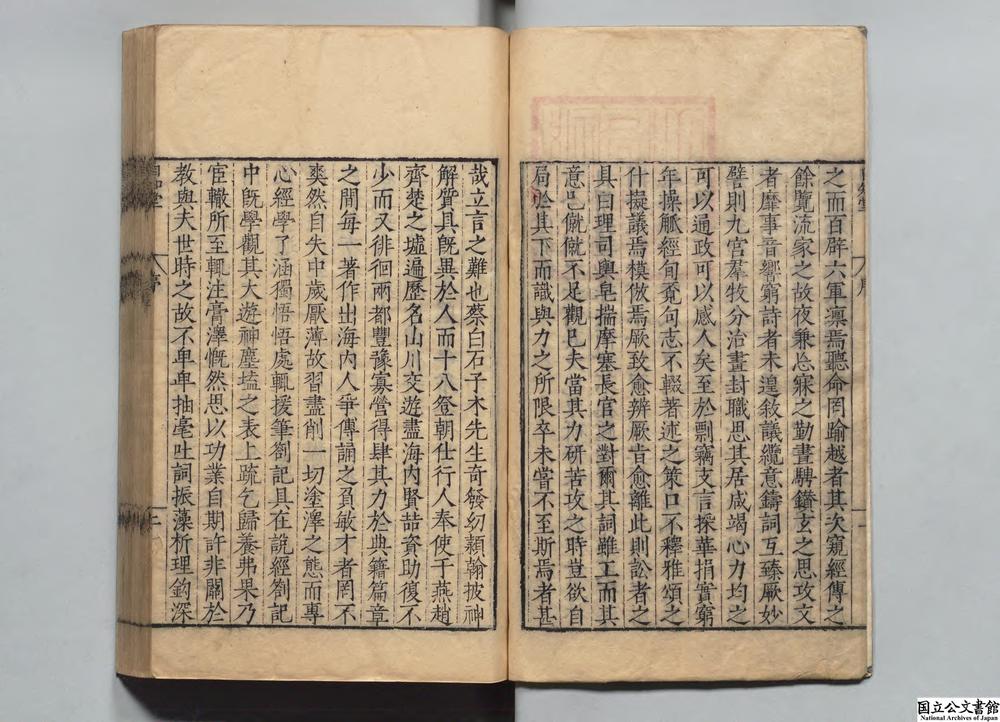 之而百辟六軍凛焉聽命罔踰越者其次窺經傳之
餘覽流家之故夜兼忘寐之勤晝騁鑽玄之思攻文
者靡事音響窮詩者未遑敘議纜意鑄詞互臻厥妙
譬則九宫羣牧分治畫封職思其居咸竭心力均之
可以通政可以感人矣至於剽竊支言採華捐實窮
年操觚經旬覓句志不輟著述之策口不釋雅頌之
什擬議焉模倣焉厥致愈辨厥旨愈離此則訟者之
具曰理司輿皂揣摩塞長官之對爾其詞雖工而其
意已僦僦不足觀已夫當其力研苦攻之時豈欲自
局於其下而識與力之所限卒未嘗不至斯焉者甚
哉立言之難也蔡曰石子木先生奇發幼穎翰披神
解質具旣異於人而十八登朝仕行人奉使于燕趙
齊楚之墟遍歷名山川交遊盡海內賢喆資助復不
少而又徘徊兩都豐豫寡營得肆其力於典籍篇章
之間每一著作出海内人爭傳誦之負敏才者罔不
爽然自失中歲厭薄故習盡削一切塗澤之態而專
心經學了涵獨悟悟處輒援筆劄記具在說經劄記
中旣學觀其大遊神塵壒之表上疏乞歸養弗果乃
宦轍所至輒注膏澤慨然思以功業自期許非關於
教與夫世時之故不卑卑抽毫吐詞振藻析理鈎深
序
二
国立公文書館
National Archives of Japan